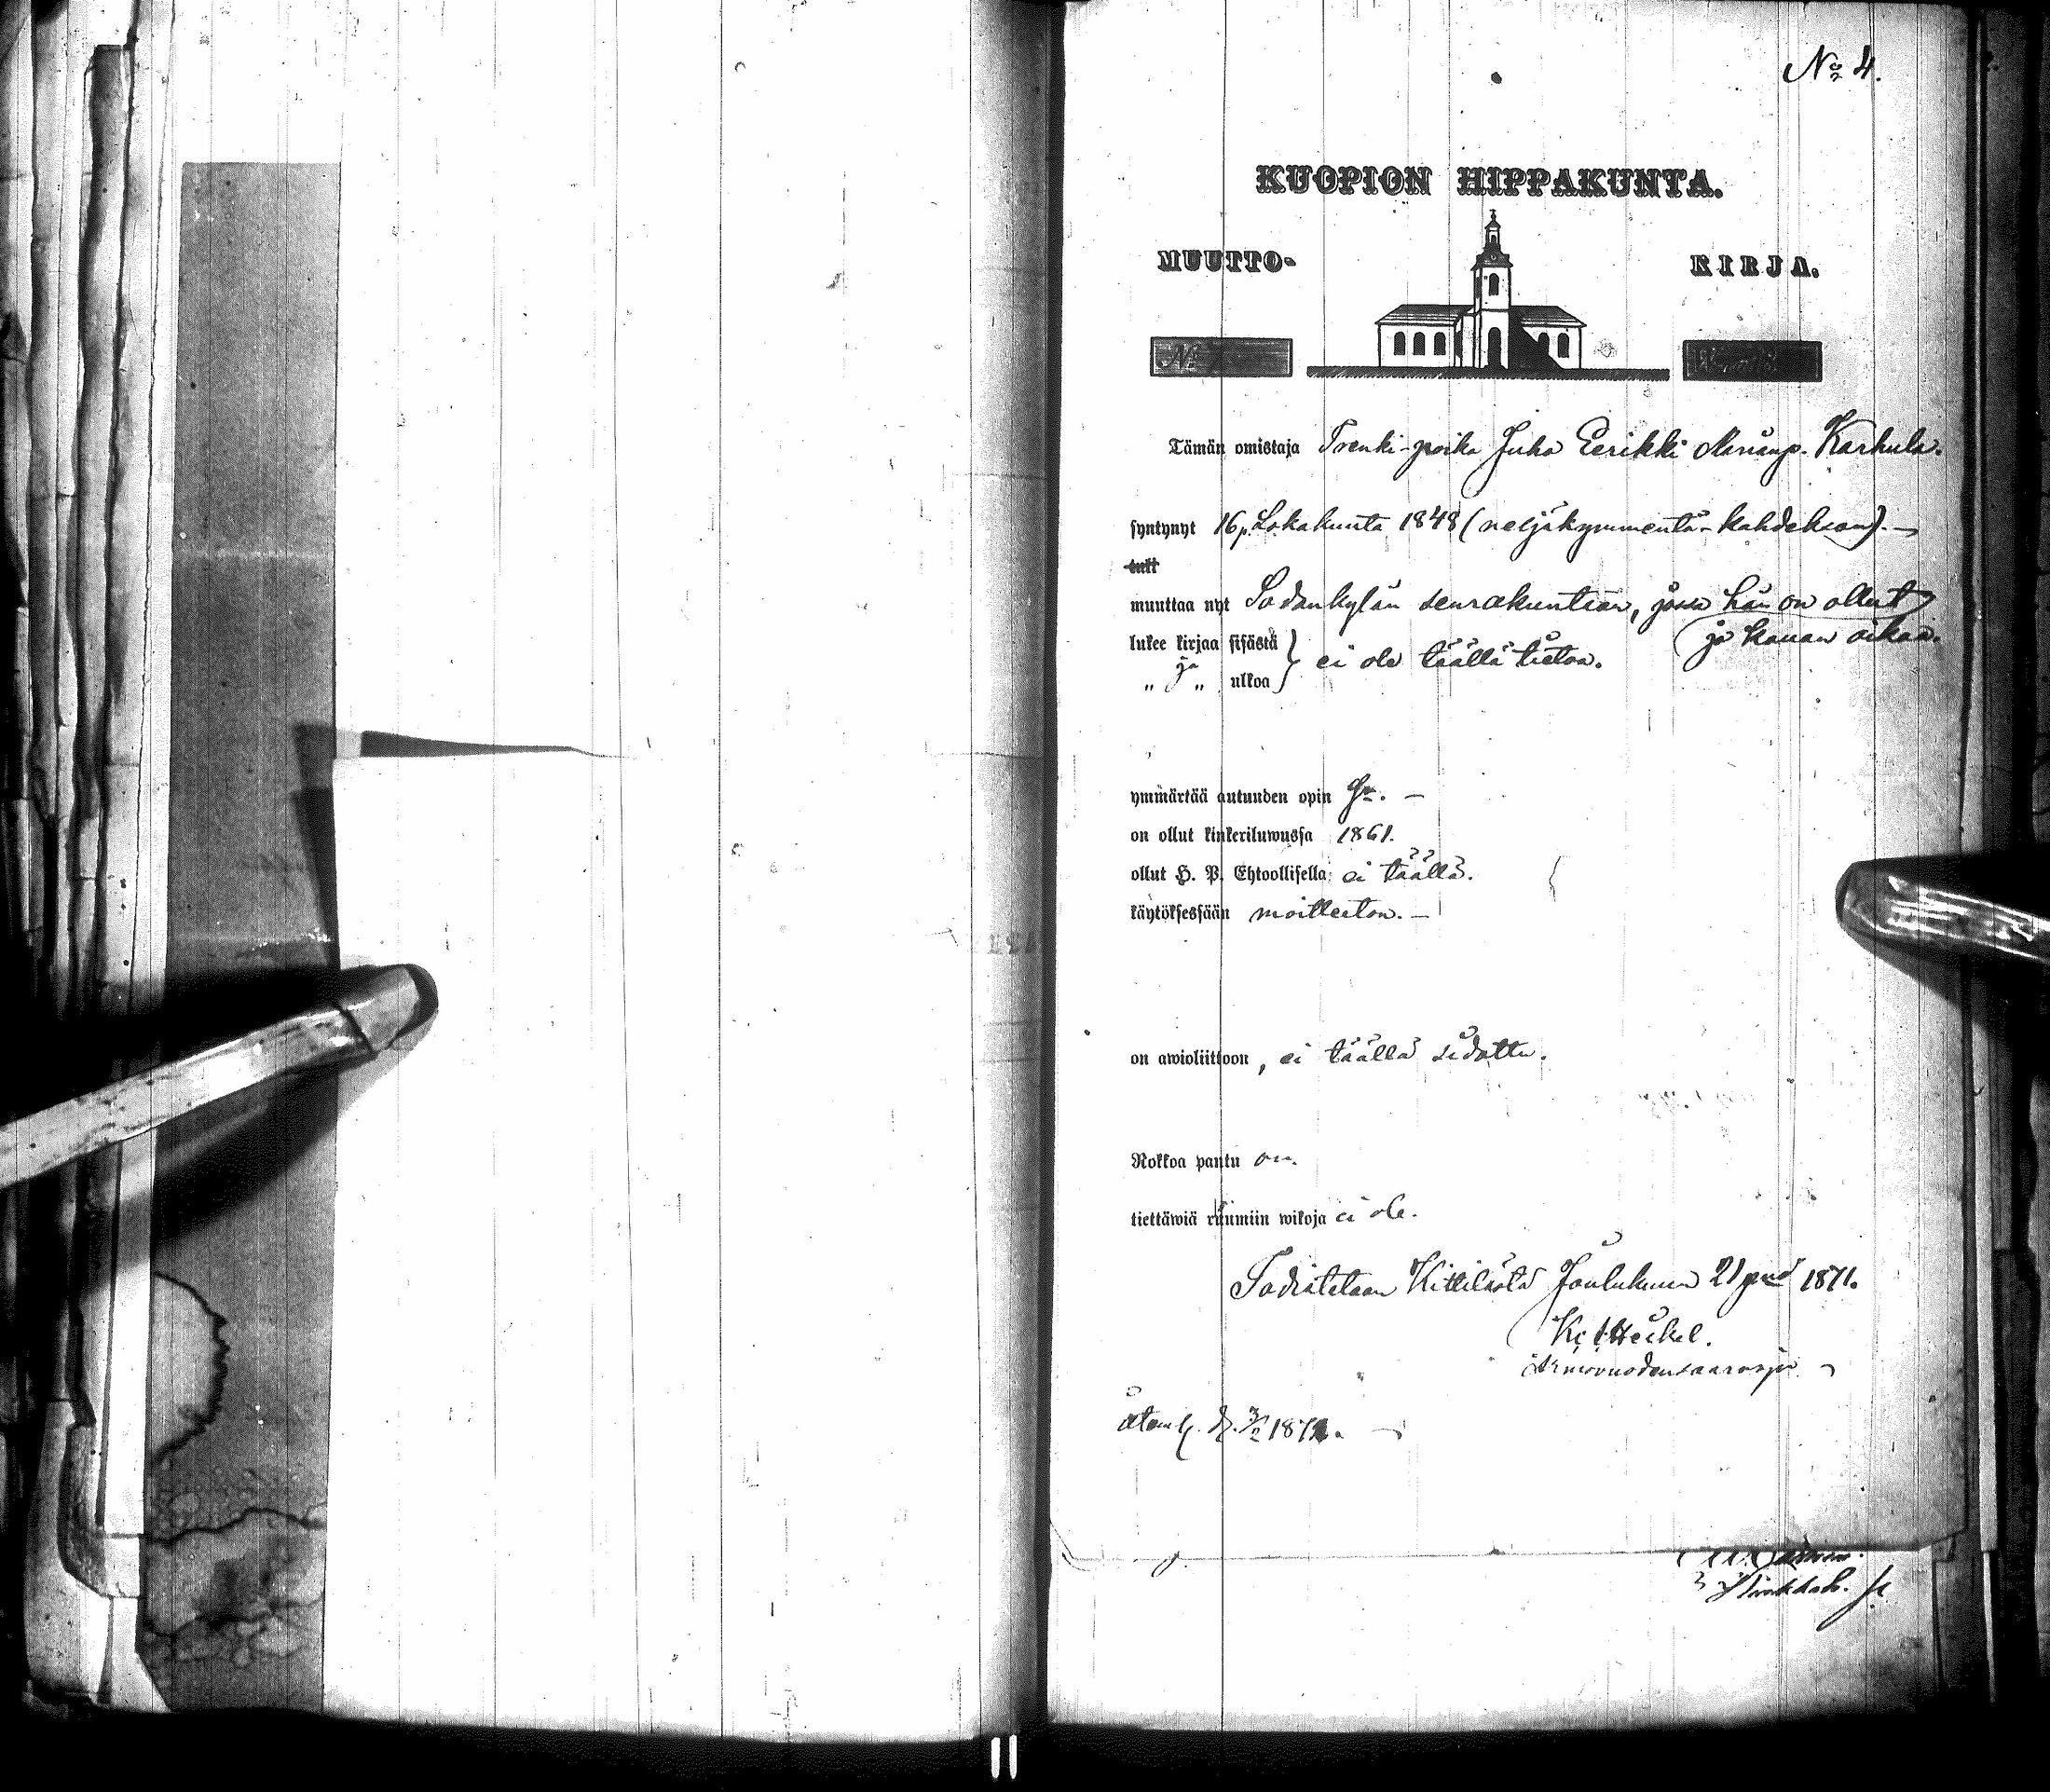 No 4.
KUOPION HIPPAKUNTA.
MUUTTO- KIRJA.
No
Tämän omistaja Trenki-poika Juho Eerikki Marianp. Karhula.
syntynyt 16 p. Lokakuuta 1848 (neljäkymmentä-kahdeksan). —
tult
muuttaa nyt Sodankylän seurakuntaan, jossa hän on ollut
jo kauan aikaa.
lukee kirjaa sisästä
„ ja „ ulkoa } ei ole täällä tietoa.
ymmärtää autuuden opin —
on ollut kinkeriluwussa 1861.
ollut H. P. Ehtoollisella ei täällä.
käytöksessään moitteeton. —
on awioliittoon, ei täällä sidottu.
Rokkoa pantu on.
tiettäwiä ruumiin wikoja ei ole.
Todistetaan Kittilästä Joulukuun 21 pnä 1871.
Heikel.
Armovuodensaarnaja.